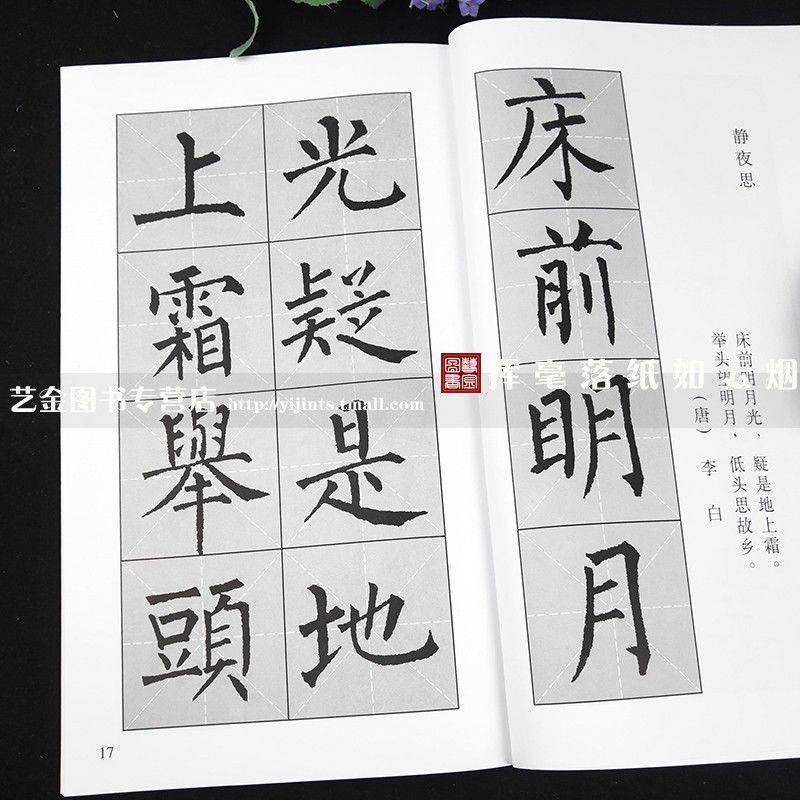 静夜思
床前明月光，疑是地上霜。
举头望明月，低头思故乡。
（唐）李白
床前明月
光疑是地
上霜舉頭
17
艺金图书专营店 http://yijints.tmall.com
挥毫落纸如云烟